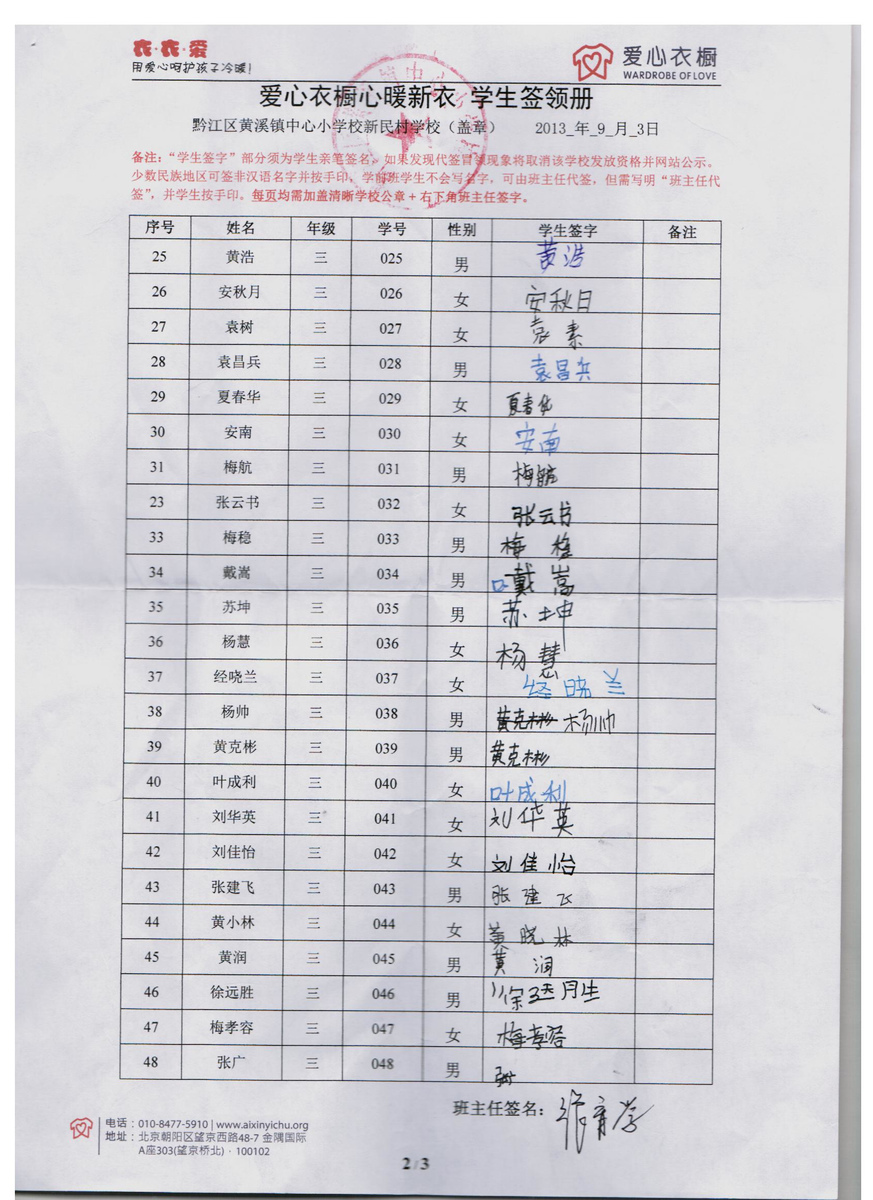 衣·衣·爱
用爱心呵护孩子冷暖!
爱心衣橱
WARDROBE OF LOVE
爱心衣橱心暖新衣 学生签领册
黔江区黄溪镇中心小学校新民村学校（盖章） 2013_年_9_月_3日
备注：“学生签字”部分须为学生亲笔签名，如果发现代签冒领现象将取消该学校发放资格并网站公示。
少数民族地区可签非汉语名字并按手印，学前班学生不会写名字，可由班主任代签，但需写明“班主任代
签”，并学生按手印。每页均需加盖清晰学校公章+右下角班主任签字。
序号 姓名 年级 学号 性别 学生签字 备注
25 黄浩 三 025 男 黄浩
26 安秋月 三 026 女 安秋日
27 袁树 三 027 女 袁素
28 袁昌兵 三 028 男 袁昌兵
29 夏春华 三 029 女 夏春华
30 安南 三 030 女 安南
31 梅航 三 031 男 梅航
23 张云书 三 032 女 张云书
33 梅稳 三 033 男 梅
34 戴嵩 三 034 男 戴嵩
35 苏坤 三 035 男 苏坤
36 杨慧 三 036 女 杨慧
37 经晓兰 三 037 女 经晓兰
38 杨帅 三 038 男 黄克彬 杨帅
39 黄克彬 三 039 男 黄克彬
40 叶成利 三 040 女 叶成利
41 刘华英 三 041 女 刘华英
42 刘佳怡 三 042 女 刘佳怡
43 张建飞 三 043 男 张建飞
44 黄小林 三 044 女 黄晓林
45 黄润 三 045 男 黄润
46 徐远胜 三 046 男 徐远胜
47 梅孝容 三 047 女 梅孝容
48 张广 三 048 男
班主任签名：
电话：010-8477-5910 | www.aixinyichu.org
地址：北京朝阳区望京西路48-7 金隅国际
A座303(望京桥北)·100102
2 / 3